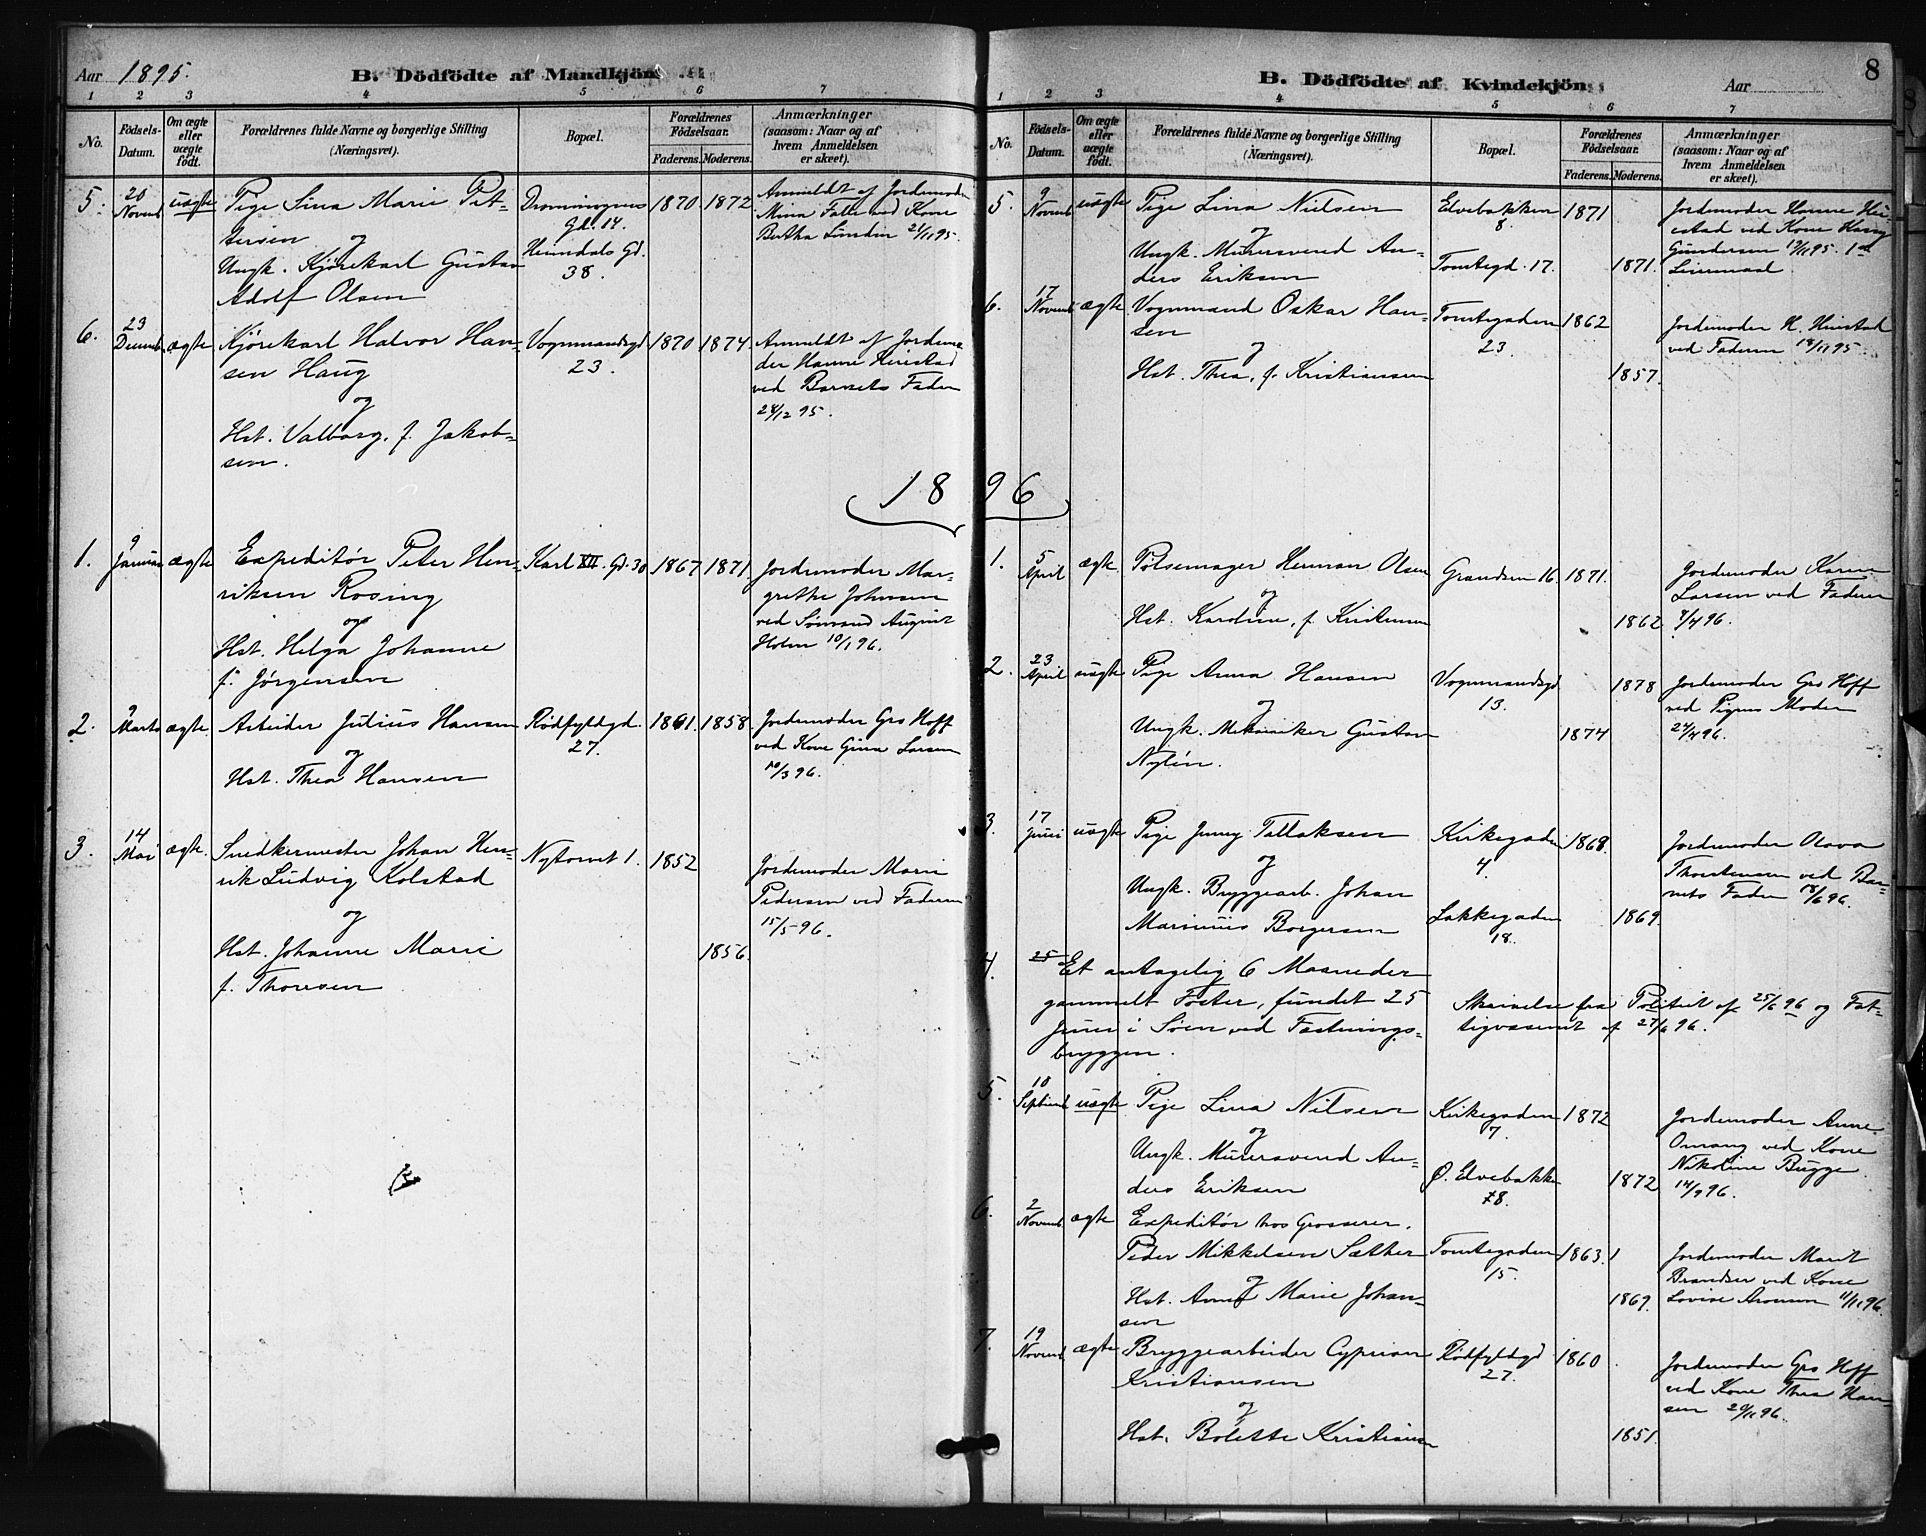 Aar 1895.
B. Dödfödte af Mandkjön.
1 2 3 4 5 6 7
No.
Födsels-Datum.
Om ægte eller uægte födt.
Forældrenes fulde Navne og borgerlige Stilling (Næringsvei).
Bopæl.
Forældrenes Födselsaar.
Faderens. Moderens.
Anmærkninger (saasom: Naar og af hvem Anmeldelsen er skeet).
5. 20 Novemb uægte Pige Lina Marie Pet-
tersen
og
Ungk. Kjørekarl Gustav
Adolf Olsen
Dronningens
Gd. 14.
Heimdals Gd.
38.
1870 1872
Anmeldt af Jordemoder
Mina Falle ved Kone
Bertha Lundin 21/11 95.
6. 23 Decemb. ægte Kjørekarl Halvor Han-
sen Haug
og
Hst. Valborg, f. Jakob-
sen.
Vognmandsgd
23.
1870 1874
Anmeldt af Jordemo-
der Hanne Heiestad
ved Barnets Fader
24/12 95.
1896
1. 9 Januar ægte Expeditør Peter Hen-
riksen Rosing
og
Hst. Helga Johanne
f. Jørgensen
Karl XII. Gd. 30
1867 1871
Jordemoder Mar-
grethe Johnsen
ved Sömand August
Holm 10/1 96.
2. 9 Marts ægte Arbeider Julius Hansen
og
Hst. Thea Hansen
Rødfyldgd.
27.
1861. 1858
Jordemoder Gro Hoff
ved Kone Gina Larsen
10/3 96.
3. 14 Mai ægte. Snedkermester Johan Hen-
rik Ludvig Kolstad
og
Hst. Johanne Marie
f. Thoresen
Nytorvet 1.
1852
1856.
Jordemoder Marie
Pedersen ved Faderen
15/5 96.
8
B. Dödfödte af Kvindekjön.
Aar
1 2 3 4 5 6 7
No.
Födsels-Datum.
Om ægte eller uægte födt.
Forældrenes fulde Navne og borgerlige Stilling (Næringsvei).
Bopæl.
Forældrenes Födselsaar.
Faderens. Moderens.
Anmærkninger (saasom: Naar og af hvem Anmeldelsen er skeet).
5. 9 Novemb uægte Pige Lina Nielsen
og
Ungk. Murersvend An-
ders Eriksen
Elvebakken
8.
Tomtegd. 17.
1871
1871.
Jordemoder Hanne Hei-
estad ved Kone Hanny
Gundersen 12/11 95.
6. 17 Novemb ægte Vognmand Oskar Han-
sen
og
Hst. Thea, f. Kristiansen
Tomtegaden
23.
1862
1857.
Jordemoder H. Heiestad
ved Faderen 18/11 95.
1. 5 April ægte Pølsemager Herman Olsen
og
Hst. Karoline, f. Kristensen
Grændsen 16.
1871.
1862
Jordemoder Karen
Larsen ved Faderen
7/4 96.
2. 23 April uægte Pige Anna Hansen
og
Ungk. Mekaniker Gustav
Nylén.
Vognmandsgd
13.
1878
1874
Jordemoder Gro Hoff
ved Pigens Moder
24/4 96.
3. 17 Juni uægte Pige Jenny Tellaksen
og
Ungk. Bryggearb. Johan
Marinius Borgersen
Kirkegaden
4.
Lakkegaden
18.
1868.
1869.
Jordemoder Olava
Thorstensen ved Bar-
nets Fader 18/6 96.
4. 25 Et antagelig 6 Maaneder
gammelt Foster, fundet 25
Juni i Søen ved Fæstnings-
bryggen.
Skrivelse fra Politiet af 25/6 96 og Fat-
tigvæsenet af 27/6 96.
5. 10 Septemb uægte Pige Lina Nilsen
og
Ungk. Murersvend An-
ders Eriksen
Kirkegaden
7.
Ø. Elvebakke
8.
1872
1872
Jordemoder Anne
Omang ved Kone
Nikoline Bugge
14/9 96.
6. 2 Novemb ægte Expeditør hos Grosserer.
Peder Mikkelsen Sæther
og
Hst. Anne Marie Johan-
sen
Tomtegaden
15.
1863.
1869.
Jordemoder Marit
Brandser ved Kone
Lovise Aronsen 11/11 96.
7. 19 Novemb ægte Bryggearbeider Cyprian
Kristiansen
og
Hst. Bolette Kristiansen
Rødfyldgd
27.
1860
1851.
Jordemoder Gro Hoff
ved Kone Thea Han-
sen 20/11 96.